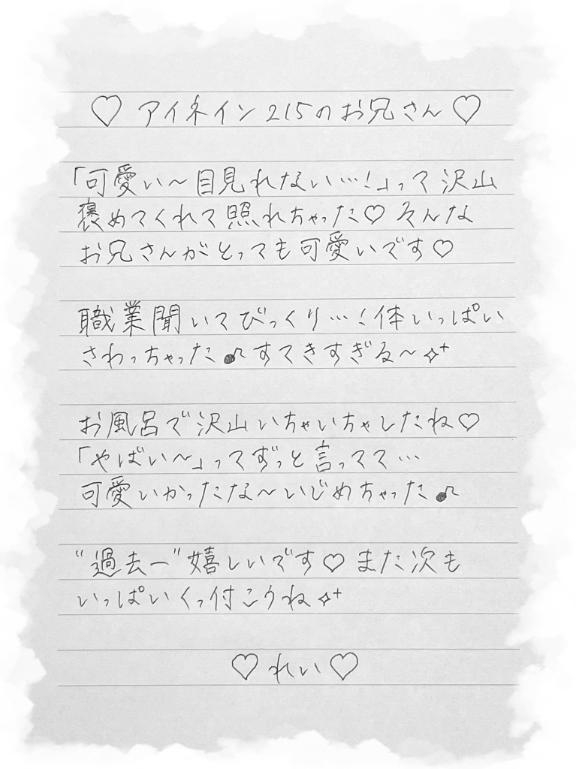 ♡ アイネイン215のお兄さん ♡
「可愛い～目見れない…!」って沢山
褒めてくれて照れちゃった♡ そんな
お兄さんがとっても可愛いです♡
職業聞いてびっくり…！体いっぱい
さわっちゃった♪すてきすぎる～✧⁺
お風呂で沢山いちゃいちゃしたね♡
「やばい～」ってずっと言ってて…
可愛いかったな～いじめちゃった♪
“過去一”嬉しいです♡また次も
いっぱいくっ付こうね✧⁺
♡ れい ♡